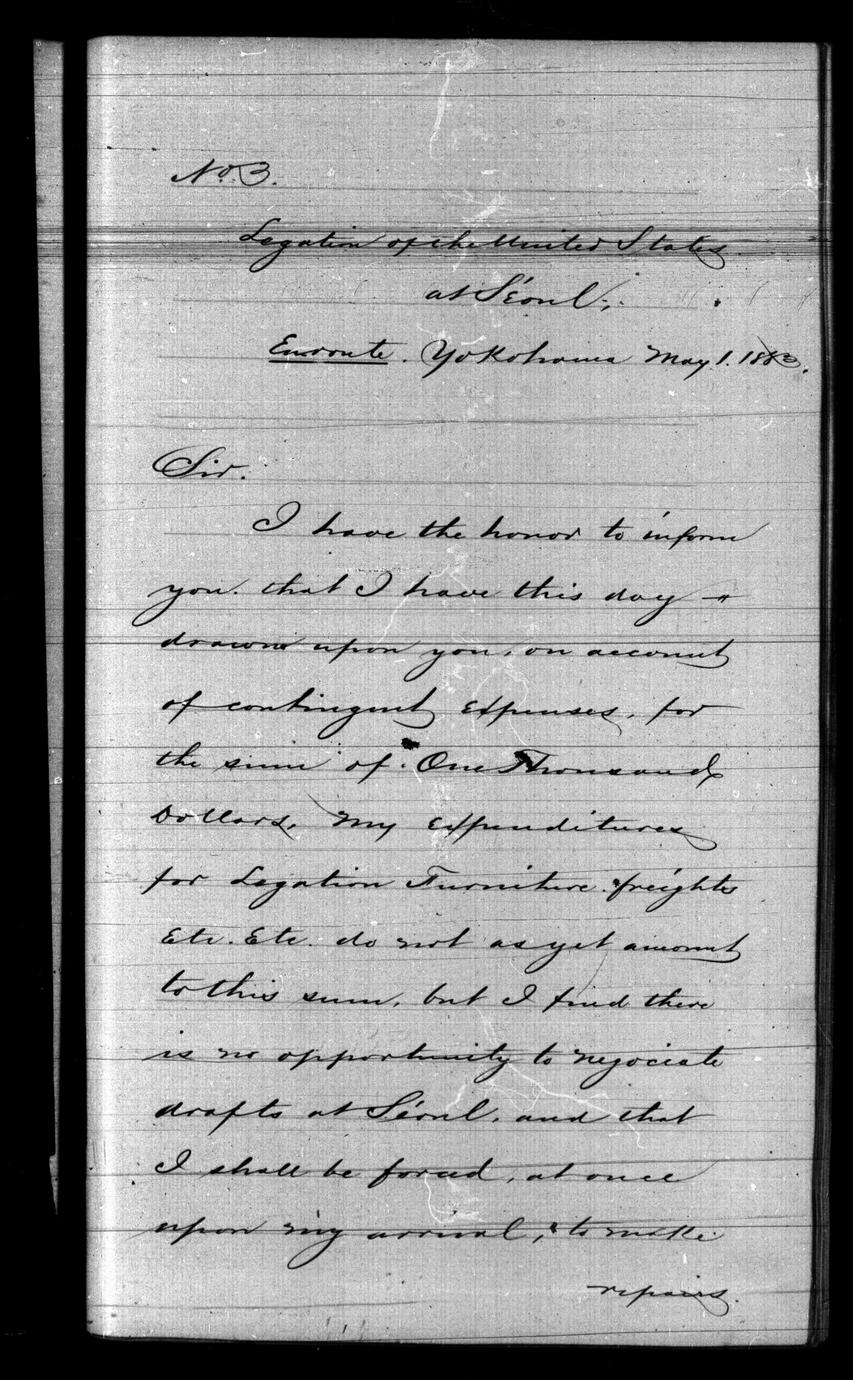 No. 3.
Legation of the United States
at Séoul;
Enroute. Yokohama May 1. 1883.
Sir.
I have the honor to inform
you. that I have this day
drawn upon you, on account
of contingent expenses, for
the sum of One Thousand
Dollars, My expenditures
for Legation Furniture. freights
Etc. Etc. do not as yet amount
to this sum, but I find there
is no opportunity to negociate
drafts at Séoul, and that
I shall be forced, at once
upon my arrival, to make
repairs.